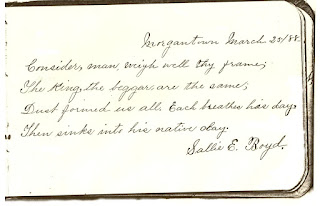 Morgantown March 25/88.
Consider, man, weigh well thy frame;
The King, the beggar, are the same;
Dust formed us all. Each breathes his day,
Then sinks into his native clay.
Sallie E. Boyd.